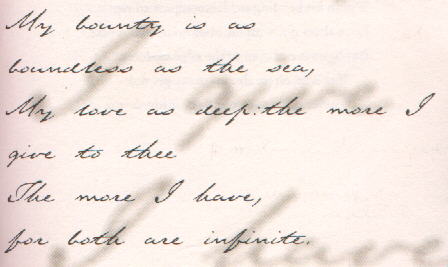 My bounty is as
boundless as the sea,
My love as deep:the more I
give to thee
The more I have,
for both are infinite.